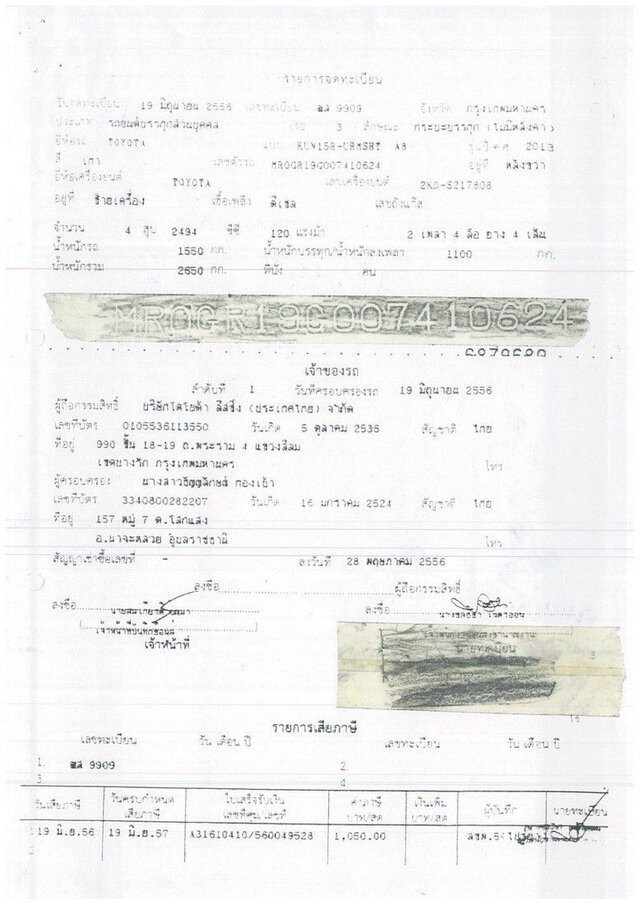 รายการจดทะเบียน
วันจดทะเบียน 19 มิถุนายน 2556 เลขทะเบียน 9909 จังหวัด กรุงเทพมหานคร
ประเภท รถยนต์บรรทุกส่วนบุคคล 3 ลักษณะ กระบะบรรทุก (ไม่มีหลังคา)
ยี่ห้อรถ TOYOTA แบบ KUN15R-URMSHT A8 รุ่นปี ค.ศ. 2013
สี เทา เลขตัวรถ MR0GR19G007410624 อยู่ที่ หลังขวา
ยี่ห้อเครื่องยนต์ TOYOTA เลขเครื่องยนต์ 2KD-S217808
อยู่ที่ ซ้ายเครื่อง เชื้อเพลิง ดีเซล เลขถังแก๊ส
จำนวน 4 สูบ 2494 ซีซี 120 แรงม้า 2 เพลา 4 ล้อ ยาง 4 เส้น
น้ำหนักรถ 1550 กก. น้ำหนักบรรทุก/น้ำหนักลงเพลา 1100 กก.
น้ำหนักรวม 2650 กก. ที่นั่ง คน
MR0GR19G007410624
เจ้าของรถ
ลำดับที่ 1 วันที่ครอบครองรถ 19 มิถุนายน 2556
ผู้ถือกรรมสิทธิ์ บริษัทโตโยต้า ลีสซิ่ง (ประเทศไทย) จำกัด
เลขที่บัตร 0105536113550 วันเกิด 5 ตุลาคม 2536 สัญชาติ ไทย
ที่อยู่ 990 ชั้น 18-19 ถ.พระราม 4 แขวงสีลม
เขตบางรัก กรุงเทพมหานคร โทร
ผู้ครอบครอง
เลขที่บัตร 3340800282207 วันเกิด 16 มกราคม 2524 สัญชาติ ไทย
ที่อยู่ 157 หมู่ 7 ต.โสกแสง
อ.นาจะหลวย อุบลราชธานี โทร
สัญญาเช่าซื้อเลขที่ - ลงวันที่ 28 พฤษภาคม 2556
ลงชื่อ ผู้ถือกรรมสิทธิ์
ลงชื่อ ลงชื่อ
เจ้าหน้าที่ นายทะเบียน
รายการเสียภาษี
เลขทะเบียน วัน เดือน ปี เลขทะเบียน วัน เดือน ปี
1. 9909 2.
3 4
วันเสียภาษี วันครบกำหนดเสียภาษี ใบเสร็จรับเงิน เลขที่คุม/เลขที่ ค่าภาษี บาท/สต เงินเพิ่ม บาท/สต ผู้บันทึก นายทะเบียน
1 19 มิ.ย.56 19 มิ.ย.57 A31610410/560049528 1,050.00
2